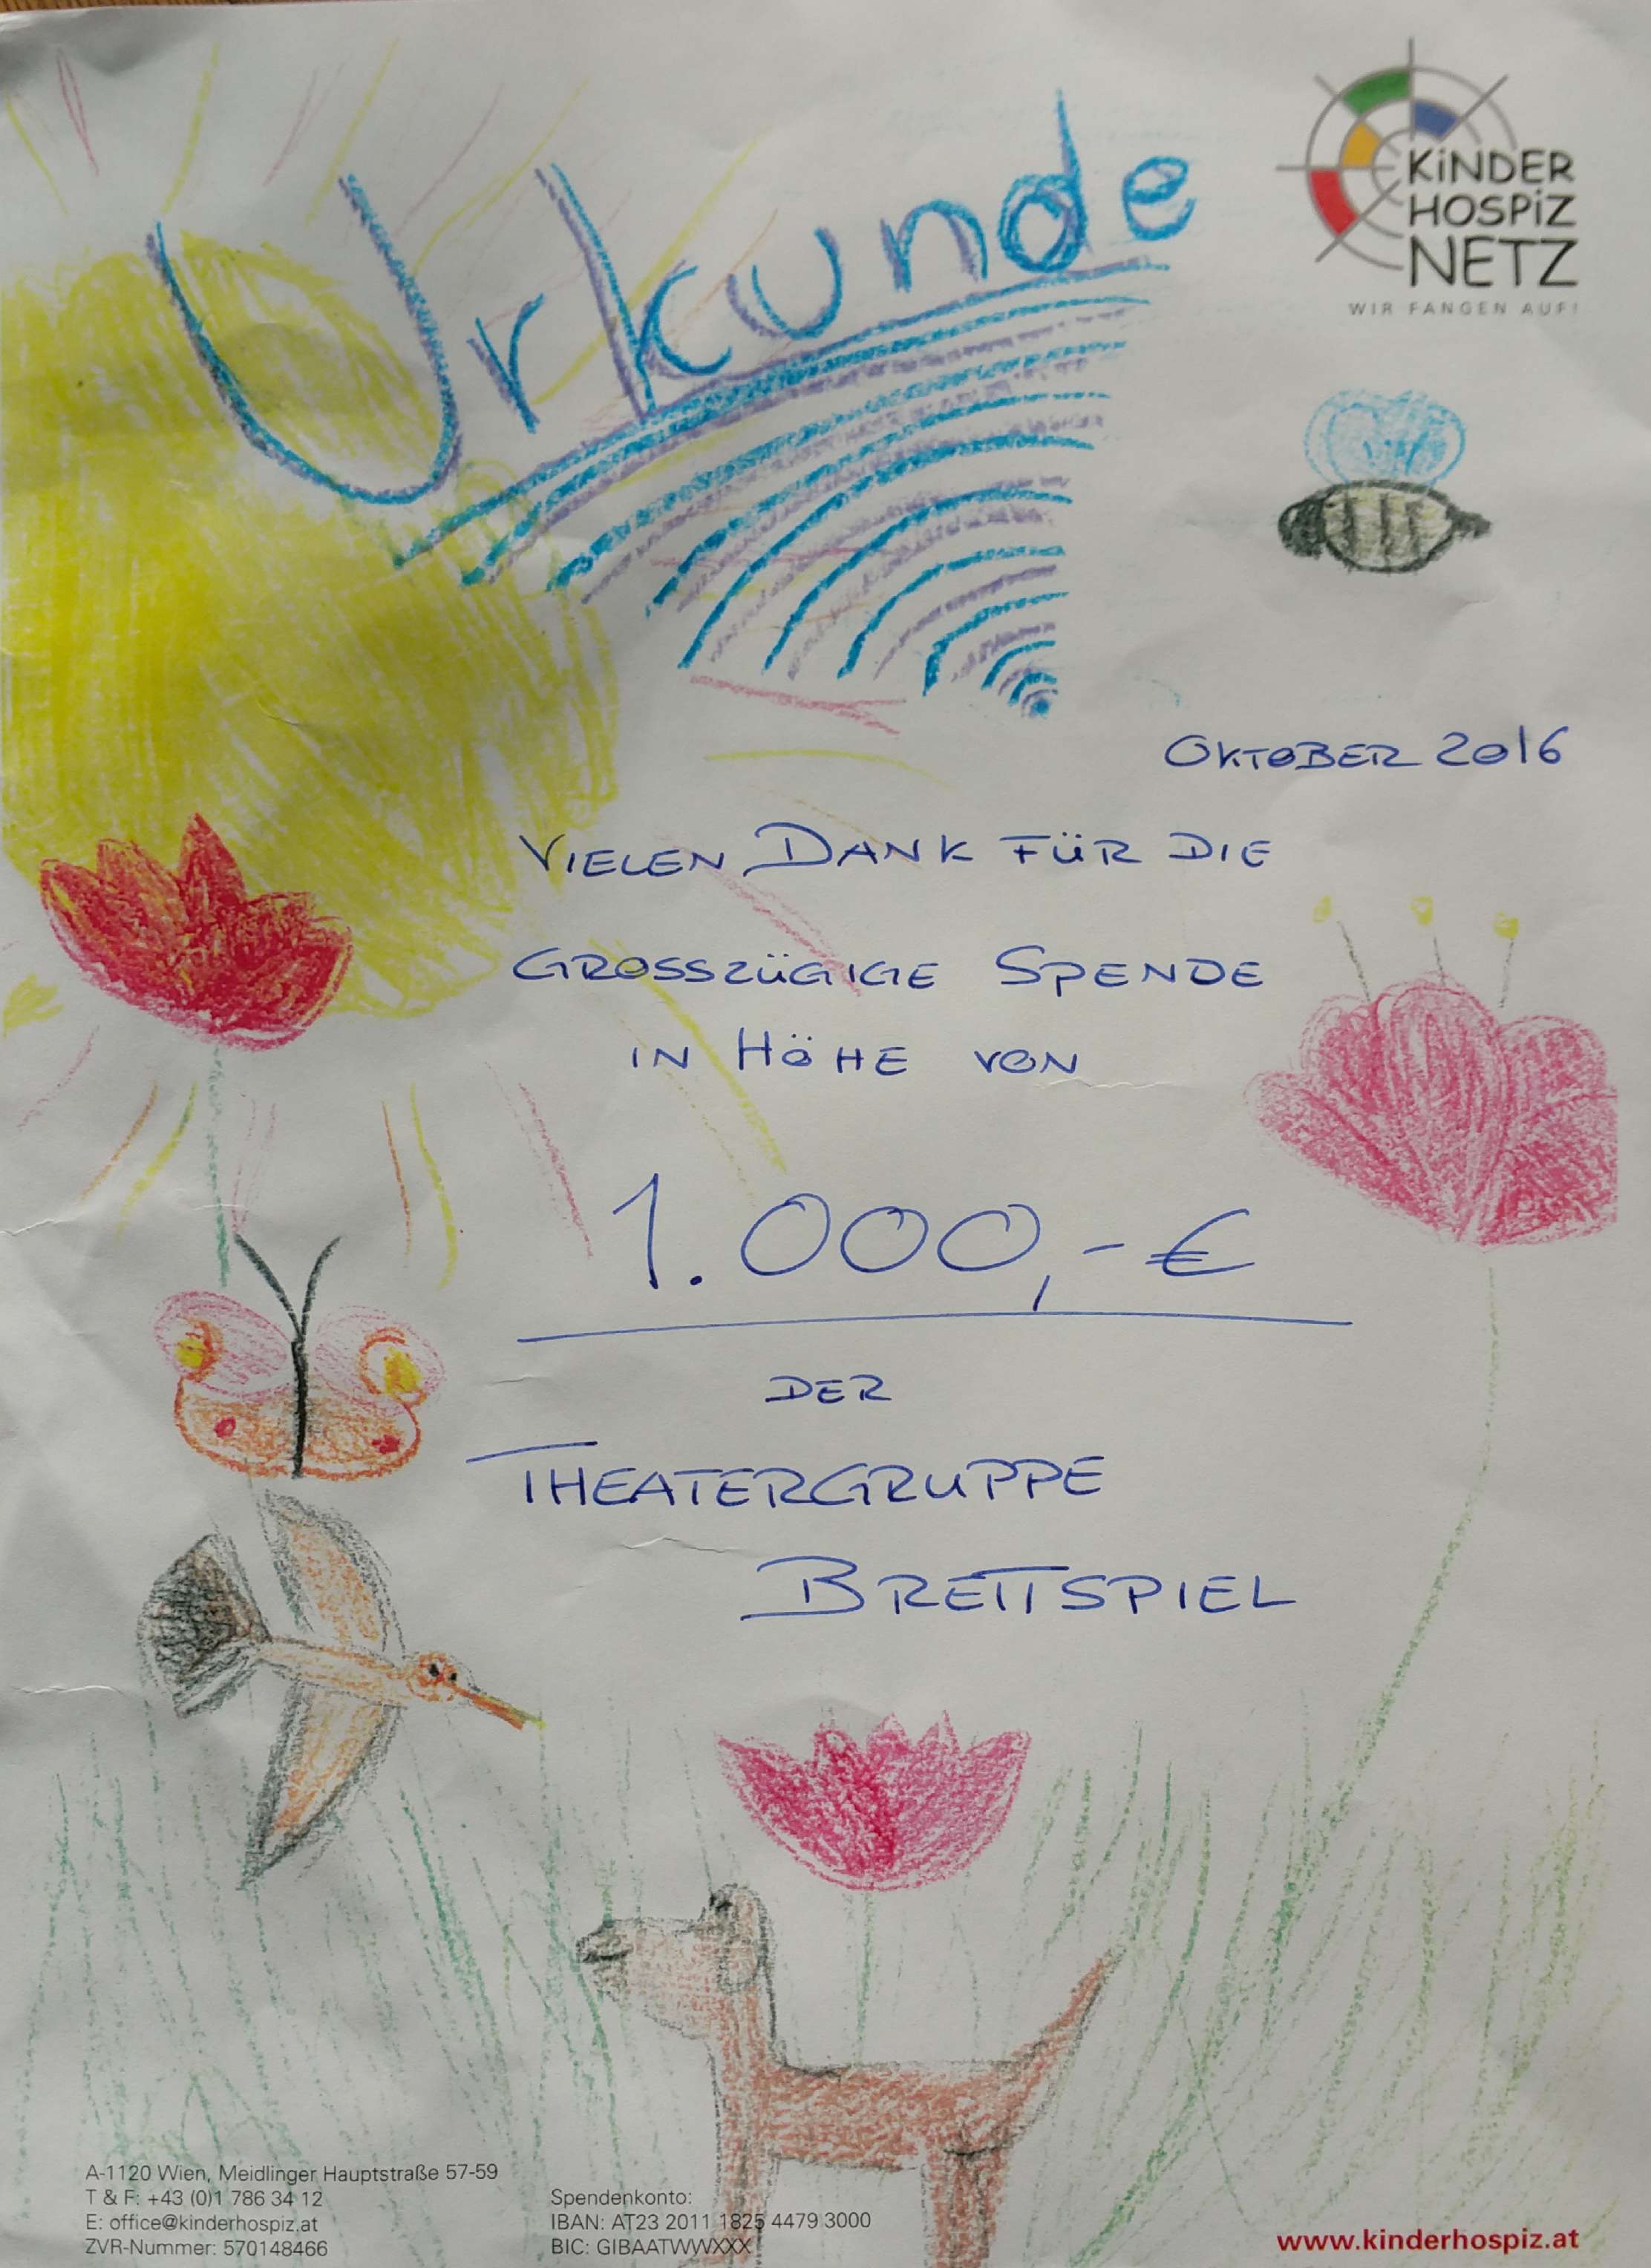 Urkunde
KiNDER
HOSPiZ
NETZ
WIR FANGEN AUF!
OKTOBER 2016
VIELEN DANK FÜR DIE
GROSSZÜGIGE SPENDE
IN HÖHE VON
1.000,- €
DER
THEATERGRUPPE
BRETTSPIEL
A-1120 Wien, Meidlinger Hauptstraße 57-59
T & F: +43 (0)1 786 34 12
E: office@kinderhospiz.at
ZVR-Nummer: 570148466
Spendenkonto:
IBAN: AT23 2011 1825 4479 3000
BIC: GIBAATWWXXX
www.kinderhospiz.at